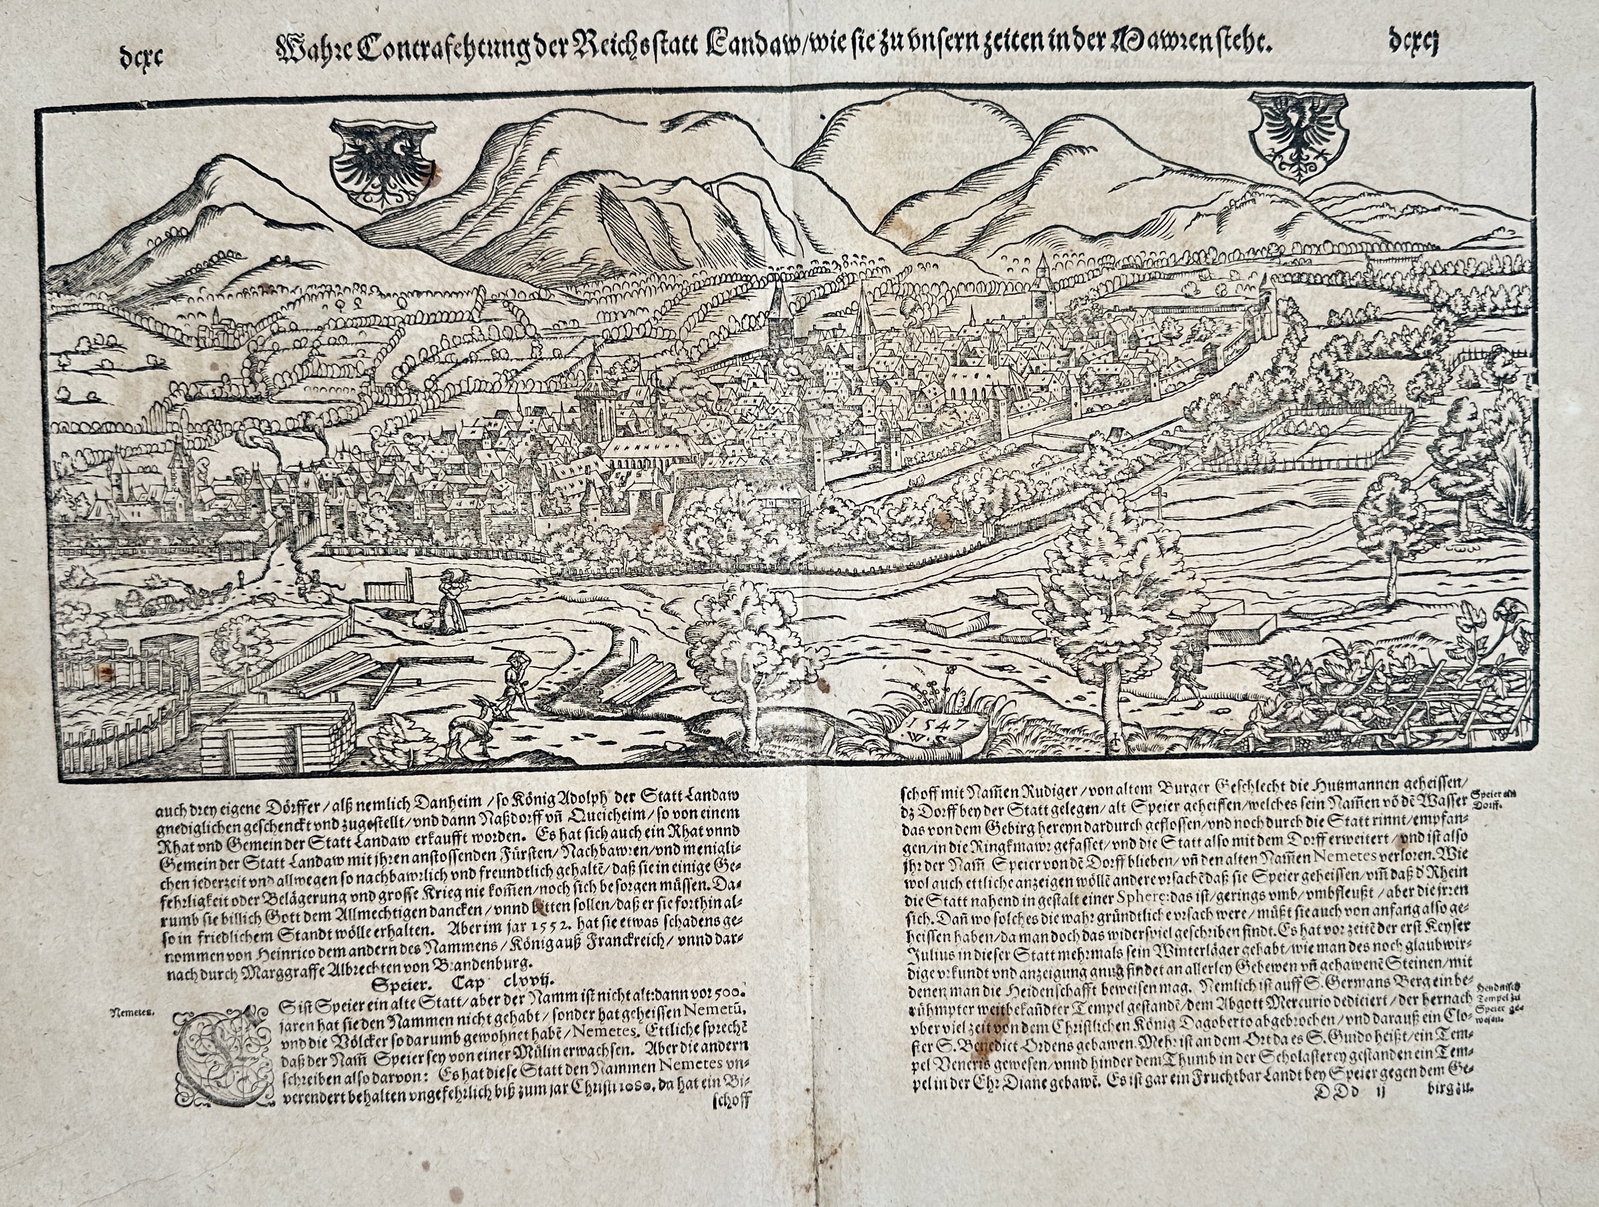 dcxc
Wahre Contrafehtung der Reichsstatt Landaw/wie sie zu vnsern zeiten in der Mawren steht.
dcxcj
1547
WS
auch drey eigene Dörffer/alß nemlich Danheim/so König Adolph der Statt Landaw
gnediglichen geschenckt vnd zugestellt/vnd dann Naßdorff vñ Queicheim/so von einem
Rhat vnd Gemein der Statt Landaw erkaufft worden. Es hat sich auch ein Rhat vnnd
Gemein der Statt Landaw mit jhren anstossenden Fürsten/Nachbawren/vnd menigli-
chen jederzeit vnd allwegen so nachbawrlich vnd freundtlich gehaltē/daß sie in einige Ge-
fehrligkeit oder Belägerung vnd grosse Krieg nie kom̃en/noch sich besorgen müssen. Da-
rumb sie billich Gott dem Allmechtigen dancken/vnnd bitten sollen/daß er sie forthin al-
so in friedlichem Standt wölle erhalten. Aber im jar 1552. hat sie etwas schadens ge-
nommen von Heinrico dem andern des Nammens/König auß Franckreich/vnnd dar-
nach durch Marggraffe Albrechten von Brandenburg.
Speier. Cap clvvij.
Nemetes.
ES ist Speier ein alte Statt/aber der Namm ist nicht alt:dann vor 500.
jaren hat sie den Nammen nicht gehabt/sonder hat geheissen Nemetū,
vnd die Völcker so darumb gewohnet habē/Nemetes. Ettliche sprechē
daß der Nam̃ Speier sey von einer Mülin erwachsen. Aber die andern
schreiben also darvon: Es hat diese Statt den Nammen Nemetes vn-
verendert behalten vngefehrlich biß zum jar Christi 1080. da hat ein Bi-
schoff
schoff mit Nam̃en Rudiger/von altem Burger Geschlecht die Hutzmannen geheissen/
dz Dorff bey der Statt gelegen/alt Speier geheissen/welches sein Nam̃en vō dē Wasser
das von dem Gebirg hereyn dardurch geflossen/vnd noch durch die Statt rinnt/empfan-
gen/in die Ringkmawr gefasset/vnd die Statt also mit dem Dorff erweitert/vnd ist also
jhr der Nam̃ Speier von dē Dorff blieben/vñ den alten Nam̃en Nemetes verloren. Wie
wol auch ettliche anzeigen wöllē andere vrsach daß sie Speier geheissen/vm̃ daß d'Rhein
die Statt nahend in gestalt einer Sphere:das ist/gerings vmb/vmbfleußt/aber die jrren
sich. Dañ wo solches die wahr gründtliche vrsach were/müßt sie auch von anfang also ge-
heissen haben/da man doch das widerspiel geschriben findt. Es hat vor zeitē der erst Keyser
Julius in dieser Statt mehrmals sein Winterläger gehabt/wie man des noch glaubwir-
dige vrkundt vnd anzeigung gnug findet an allerley Gebewen vñ gehawenē Steinen/mit
denen man die Heidenschafft beweisen mag. Nemlich ist auff S. Germans Berg ein be-
rühmpter weitbekandter Tempel gestandē/dem Abgott Mercurio dediciert/der hernach
vber viel zeit von dem Christlichen König Dagoberto abgebrochen/vnd darauß ein Clo-
ster S. Benedict Ordens gebawen. Mehr ist an dem Ort da es S. Guido heißt/ein Tem-
pel Veneris gewesen/vnnd hinder dem Thumb in der Scholasterey gestanden ein Tem-
pel in der Ehr Diane gebawē. Es ist gar ein Fruchtbar Landt bey Speier gegen dem Ge-
DDd ij
birg zu.
Speier ein
Dorff.
Heydnisch
Tempel zu
Speier ge-
wesen.